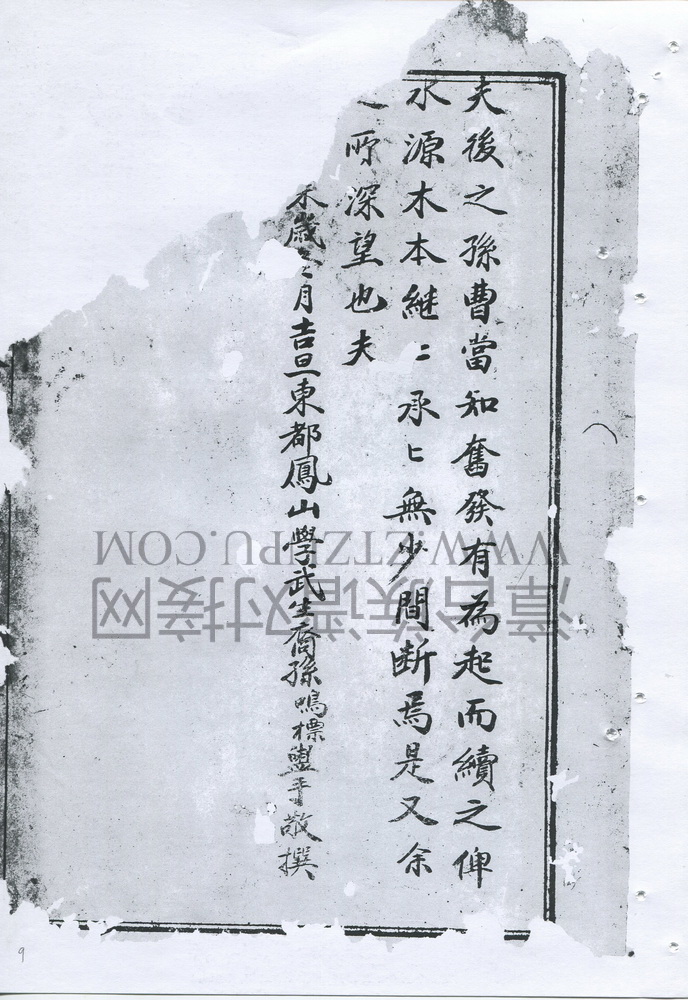 夫後之孫曹當知奮發有為起而續之俾
水源木本継〻承〻無少間断焉是又余
之所深望也夫
禾歲月吉旦東都鳳山學武生裔孫鳴標盥手敬撰
漳台族谱对接网
WWW.ZTZUPU.COM
9